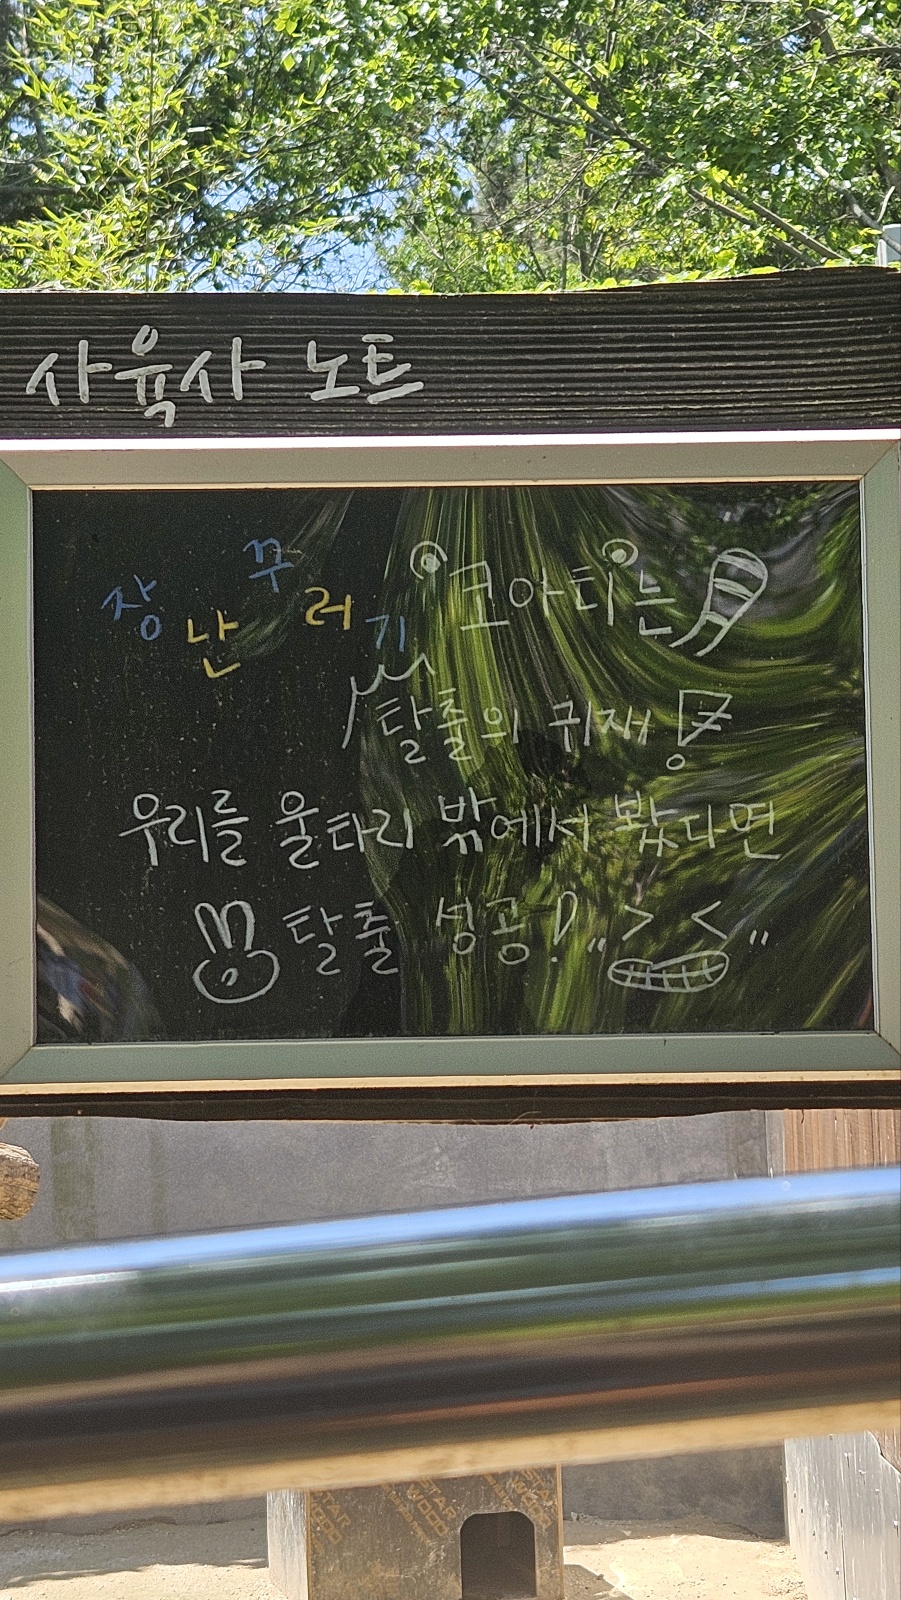 사육사 노트
장난꾸러기 코아티는
탈출의 귀재!
우리를 울타리 밖에서 봤다면
탈출 성공! „ > < „
STAR
WOOD